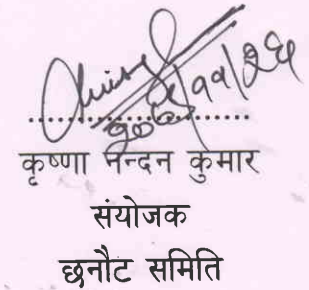 ११/२६
कृष्णा नन्दन कुमार
संयोजक
छनौट समिति